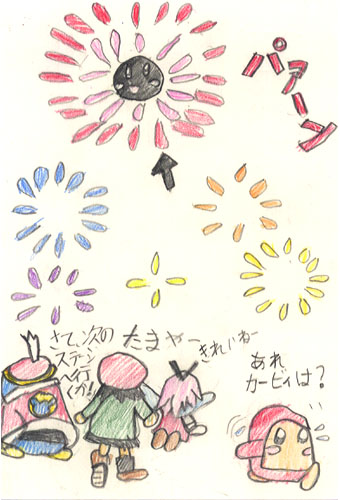 パァーン
さて、次の
ステージ
へ行
くか!
たまやー
きれいねー
あれ
カービィは?